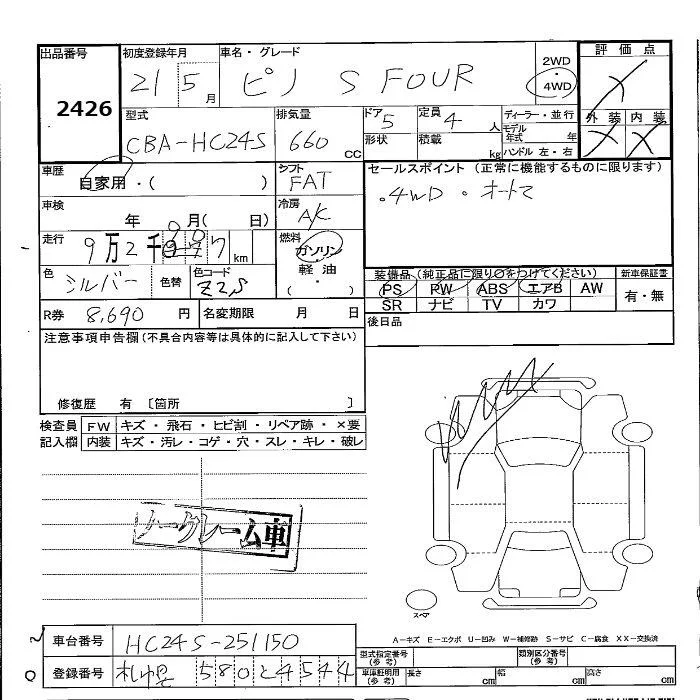 出品番号 初度登録年月 車名・グレード 2WD ・ 4WD 評価点
2426 21 5月 ピノ S FOUR
外装 内装
型式 排気量 ドア 5 定員 4人 ディーラー・並行
CBA-HC24S 660 cc 形状 積載 kg モデル年式 年
ハンドル 左・右
車歴 シフト セールスポイント (正常に機能するものに限ります)
自家用・( ) FAT .4WD ・オートマ
車検 年 月( 日) 冷房 A/C
走行 9万2千 km 燃料 ガソリン 軽油 ・( )
色 シルバー 色替 色コード Z2S
装備品(純正品に限り○をつけてください) 新車保証書
PS PW ABS エアB AW 有・無
SR ナビ TV カワ
R券 8,690 円 名変期限 月 日 後日品
注意事項申告欄(不具合内容等は具体的に記入して下さい)
修復歴 有 〔箇所 〕
検査員 FW キズ・飛石・ヒビ割・リペア跡・×要
記入欄 内装 キズ・汚レ・コゲ・穴・スレ・キレ・破レ
ノークレーム車
スペア
A-キズ E-エクボ U-凹み W-補修跡 S-サビ C-腐食 XX-交換済
車台番号 HC24S-251150
型式指定番号(参考) 類別区分番号(参考)
登録番号 580 と 4544
車庫証明用(参考) 長さ cm 幅 cm 高さ cm